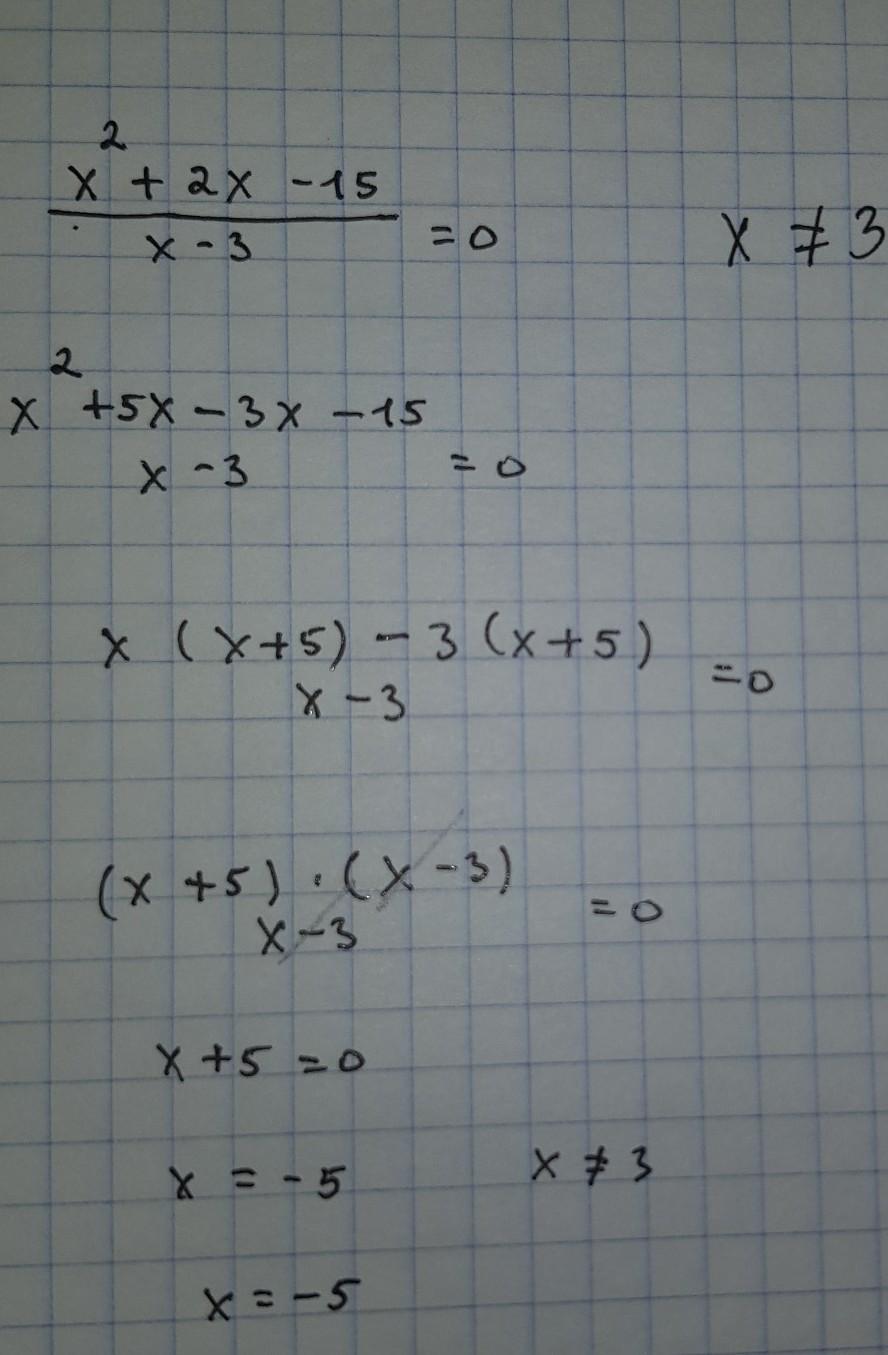 x² + 2x - 15
x - 3 = 0 x ≠ 3
x² + 5x - 3x - 15
x - 3 = 0
x (x+5) - 3 (x+5)
x - 3 = 0
(x + 5) · (x - 3)
x - 3 = 0
x + 5 = 0
x = - 5 x ≠ 3
x = - 5